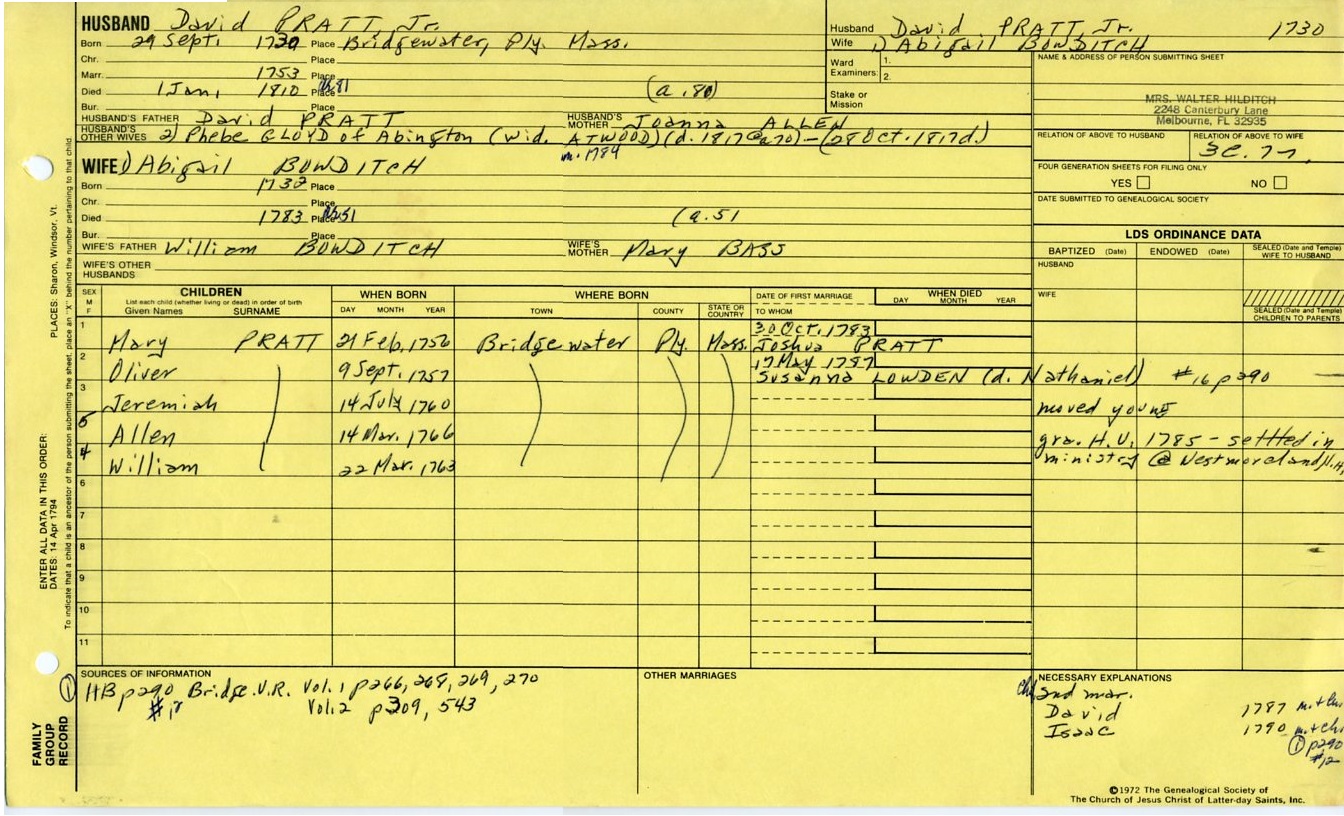 HUSBAND David PRATT Jr.
Born 29 Sept. 1730 Place Bridgewater, Ply. Mass.
Chr. Place
Marr. 1753 Place
Died 1 Jan, 1810 Place (a.80)
Bur. Place
HUSBAND'S FATHER David PRATT HUSBAND'S MOTHER Joanna ALLEN
HUSBAND'S OTHER WIVES 2) Phebe CLOYD of Abington (wid. ATWOOD) (d. 1817 @ a70) - (28 Oct. 1817 d.)
m. 1784
WIFE 1) Abigail BOWDITCH
Born 1732 Place
Chr. Place
Died 1783 Place (a.51
Bur. Place
WIFE'S FATHER William BOWDITCH WIFE'S MOTHER Mary BASS
WIFE'S OTHER HUSBANDS
Husband David PRATT, Jr. 1730
Wife 1) Abigail BOWDITCH
Ward Examiners: 1.
2.
Stake or Mission
NAME & ADDRESS OF PERSON SUBMITTING SHEET
MRS. WALTER HILDITCH
2248 Canterbury Lane
Melbourne, FL 32935
RELATION OF ABOVE TO HUSBAND RELATION OF ABOVE TO WIFE
FOUR GENERATION SHEETS FOR FILING ONLY
YES NO
DATE SUBMITTED TO GENEALOGICAL SOCIETY
LDS ORDINANCE DATA
BAPTIZED (Date) ENDOWED (Date) SEALED (Date and Temple) WIFE TO HUSBAND
HUSBAND
WIFE
SEALED (Date and Temple) CHILDREN TO PARENTS
SEX M F CHILDREN List each child (whether living or dead) in order of birth Given Names SURNAME WHEN BORN DAY MONTH YEAR WHERE BORN TOWN COUNTY STATE OR COUNTRY DATE OF FIRST MARRIAGE TO WHOM WHEN DIED DAY MONTH YEAR
1 Mary PRATT 21 Feb. 1756 Bridgewater Ply. Mass. 30 Oct. 1783 Joshua PRATT
2 Oliver 9 Sept. 1757 17 May 1787 Susanna LOWDEN (d. Nathaniel) #16 p290
3 Jeremiah 14 July 1760 moved young
5 Allen 14 Mar. 1766 gra. H.U. 1785 - settled in
4 William 22 Mar. 1763 ministry @ Westmoreland, N.H.
6
7
8
9
10
11
SOURCES OF INFORMATION
① HB p290 Bridge.V.R. Vol.1 p266, 268, 269, 270
Vol.2 p309, 543
OTHER MARRIAGES
NECESSARY EXPLANATIONS
2nd mar.
David 1787
Isaac 1790
① p290
#12
©1972 The Genealogical Society of
The Church of Jesus Christ of Latter-day Saints, Inc.
FAMILY GROUP RECORD
ENTER ALL DATA IN THIS ORDER:
DATES: 14 Apr 1794
PLACES: Sharon, Windsor, Vt.
To indicate that a child is an ancestor of the person submitting the sheet, place an "X" behind the number pertaining to that child.